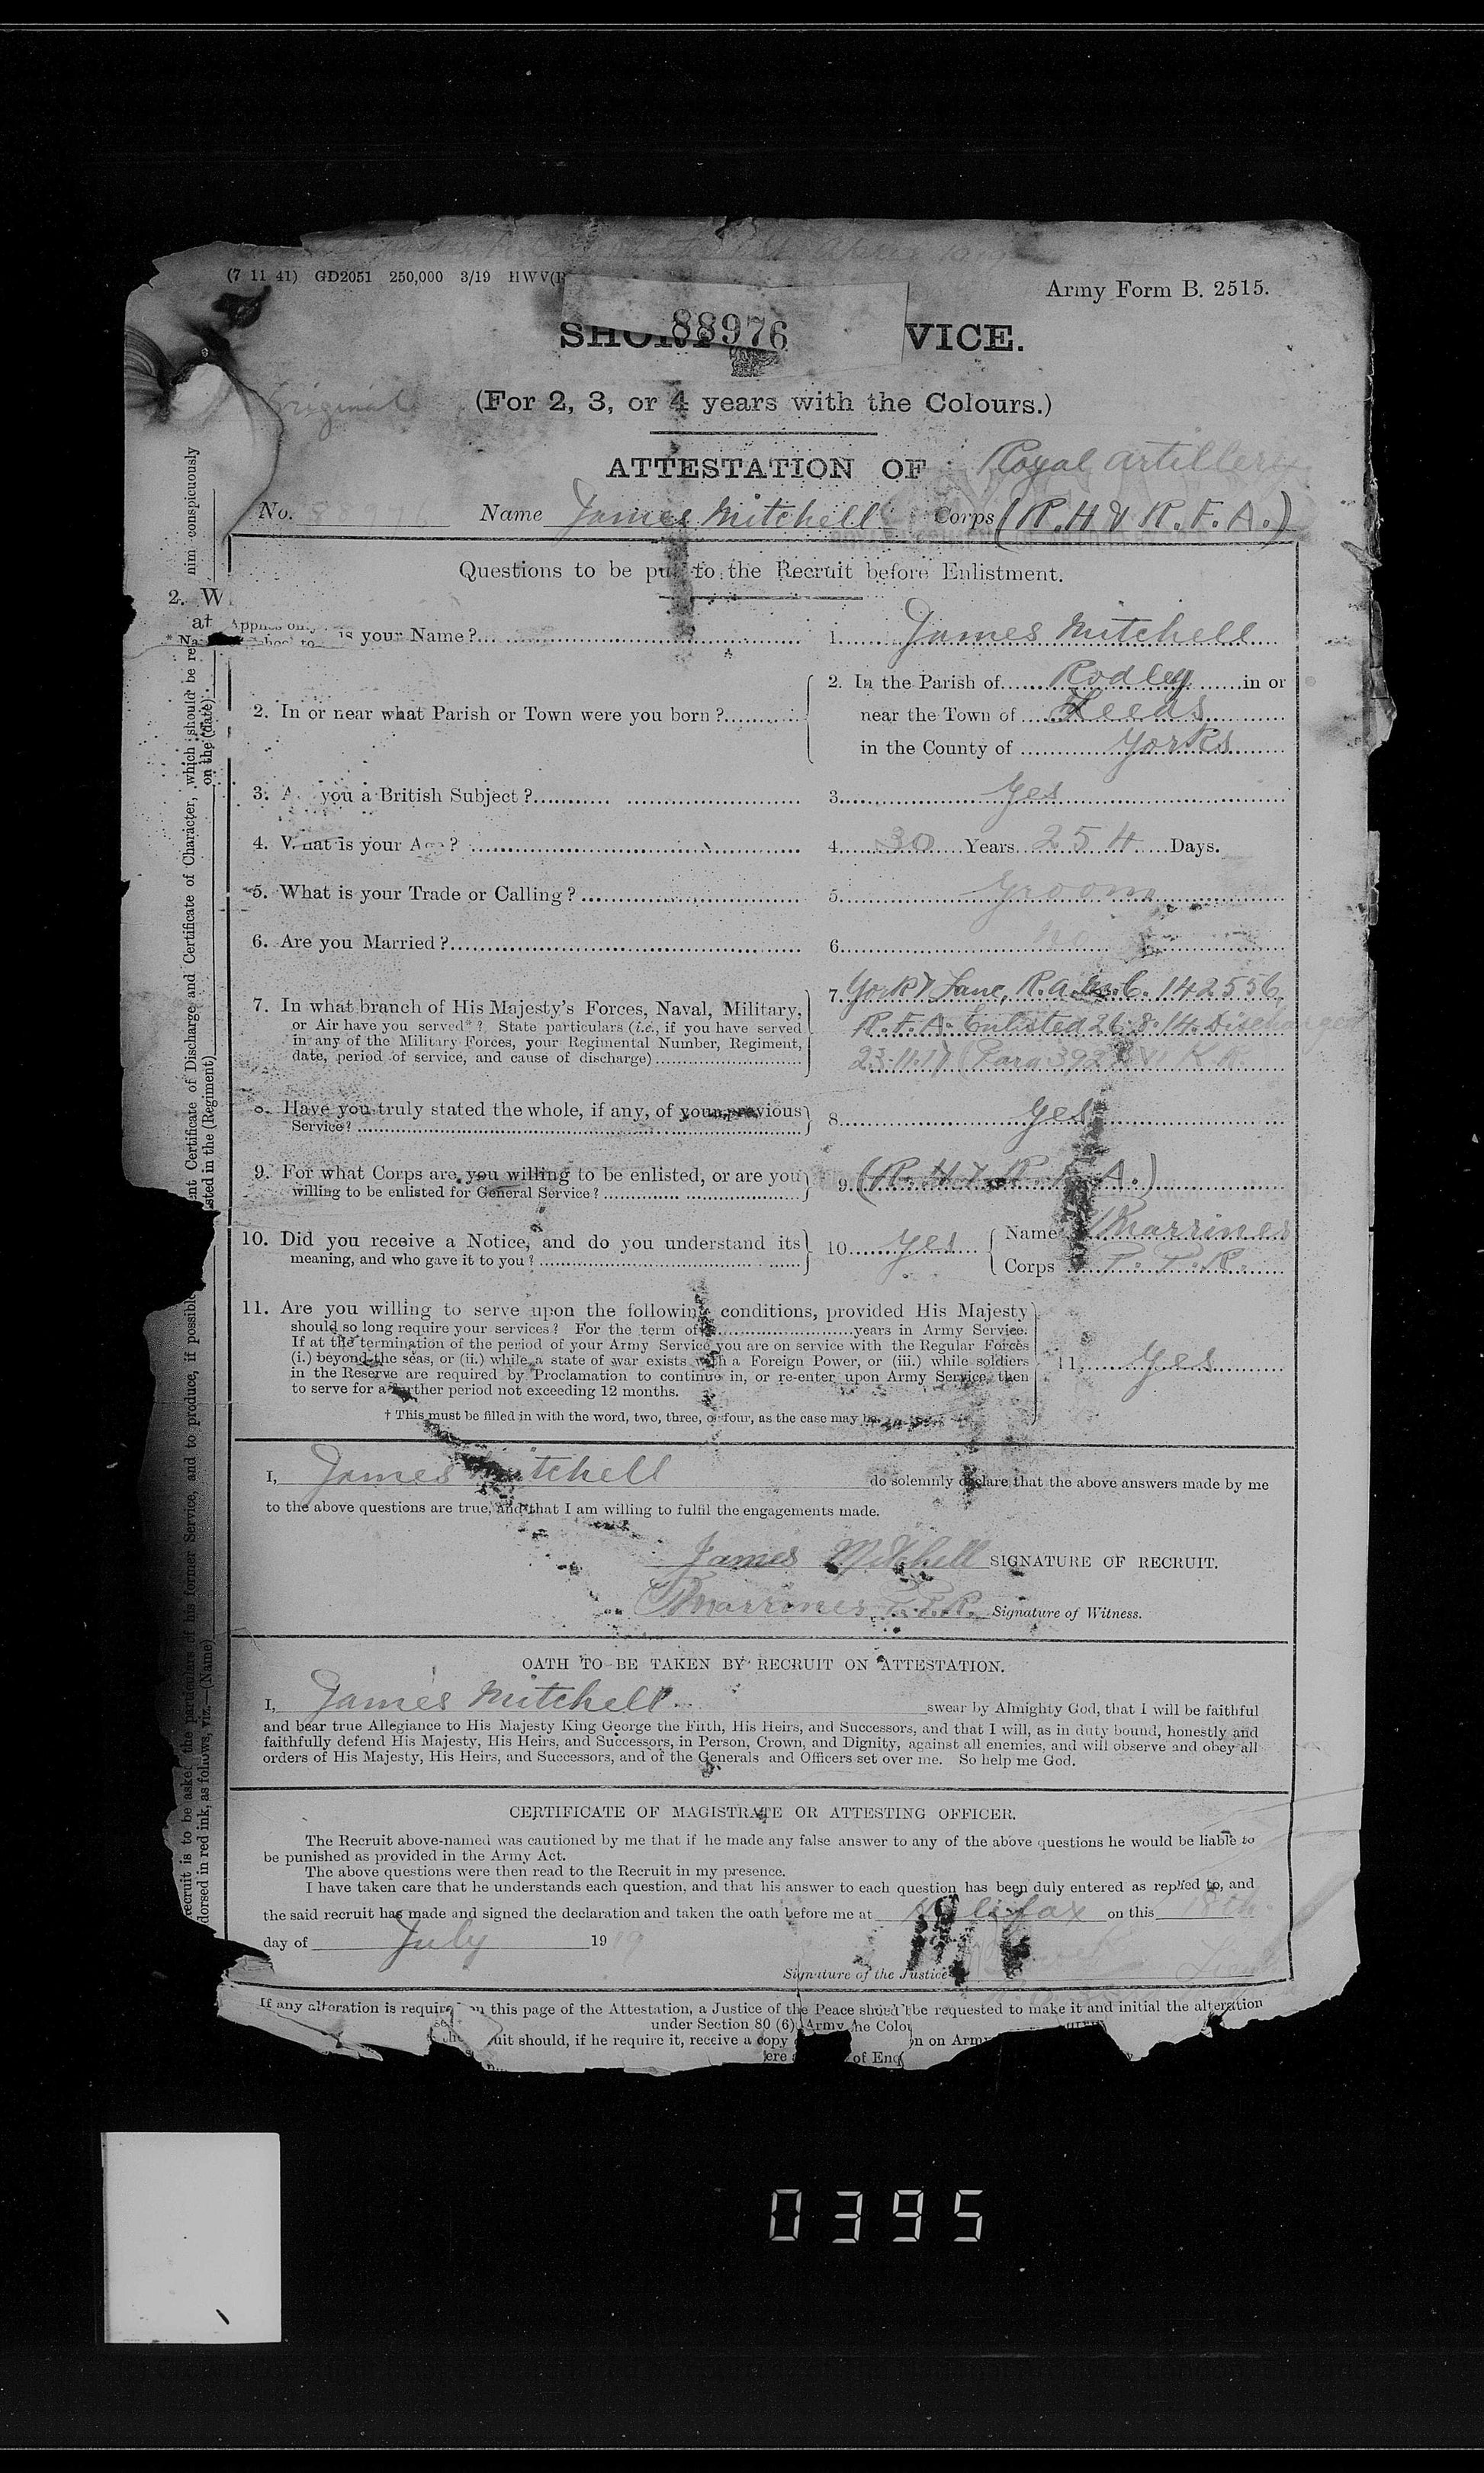 (7 11 41) GD2051 250,000 3/19 HWV(R
Army Form B. 2515.
88976
SHORT VICE.
Original
(For 2, 3, or 4 years with the Colours.)
ATTESTATION OF Royal Artillery
No. 88976 Name James Mitchell Corps (R.H & R.F.A.)
Questions to be put to the Recruit before Enlistment.
is your Name? 1. James Mitchell
2. In or near what Parish or Town were you born? 2. In the Parish of Rodley in or
near the Town of Leeds
in the County of Yorks
3. A you a British Subject? 3. Yes
4. What is your Age? 4. 30 Years 254 Days.
5. What is your Trade or Calling? 5. Groom
6. Are you Married? 6. No
7. In what branch of His Majesty's Forces, Naval, Military, 7. York & Lanc, R.A.M.C. 142556,
or Air have you served*? State particulars (i.e., if you have served R.F.A. Enlisted 26.8.14. Discharged
in any of the Military Forces, your Regimental Number, Regiment,
date, period of service, and cause of discharge) 23.11.17 (Para 392 XVI K.R.)
8. Have you truly stated the whole, if any, of your previous 8. Yes
Service?
9. For what Corps are you willing to be enlisted, or are you 9. (R.H & R.F.A.)
willing to be enlisted for General Service?
10. Did you receive a Notice, and do you understand its 10. Yes Name Marriner
meaning, and who gave it to you? Corps
11. Are you willing to serve upon the following conditions, provided His Majesty
should so long require your services? For the term of years in Army Service.
If at the termination of the period of your Army Service you are on service with the Regular Forces
(i.) beyond the seas, or (ii.) while a state of war exists with a Foreign Power, or (iii.) while soldiers 11. Yes
in the Reserve are required by Proclamation to continue in, or re-enter upon Army Service, then
to serve for a further period not exceeding 12 months.
† This must be filled in with the word, two, three, or four, as the case may be.
I, James Mitchell do solemnly declare that the above answers made by me
to the above questions are true, and that I am willing to fulfil the engagements made.
James Mitchell SIGNATURE OF RECRUIT.
Marriner Signature of Witness.
OATH TO BE TAKEN BY RECRUIT ON ATTESTATION.
I, James Mitchell swear by Almighty God, that I will be faithful
and bear true Allegiance to His Majesty King George the Fifth, His Heirs, and Successors, and that I will, as in duty bound, honestly and
faithfully defend His Majesty, His Heirs, and Successors, in Person, Crown, and Dignity, against all enemies, and will observe and obey all
orders of His Majesty, His Heirs, and Successors, and of the Generals and Officers set over me. So help me God.
CERTIFICATE OF MAGISTRATE OR ATTESTING OFFICER.
The Recruit above-named was cautioned by me that if he made any false answer to any of the above questions he would be liable to
be punished as provided in the Army Act.
The above questions were then read to the Recruit in my presence.
I have taken care that he understands each question, and that his answer to each question has been duly entered as replied to, and
the said recruit has made and signed the declaration and taken the oath before me at Halifax on this 18th
day of July 1919
Signature of the Justice Lieut
If any alteration is required on this page of the Attestation, a Justice of the Peace should be requested to make it and initial the alteration
under Section 80 (6) Army
uit should, if he require it, receive a copy on on Army
nim conspicuously
2. W
at
ent Certificate of Discharge and Certificate of Character, which should be re
on the (date)
sted in the (Regiment)
recruit is to be asked the particulars of his former Service, and to produce, if possible
dorsed in red ink, as follows, viz.—(Name)
0395